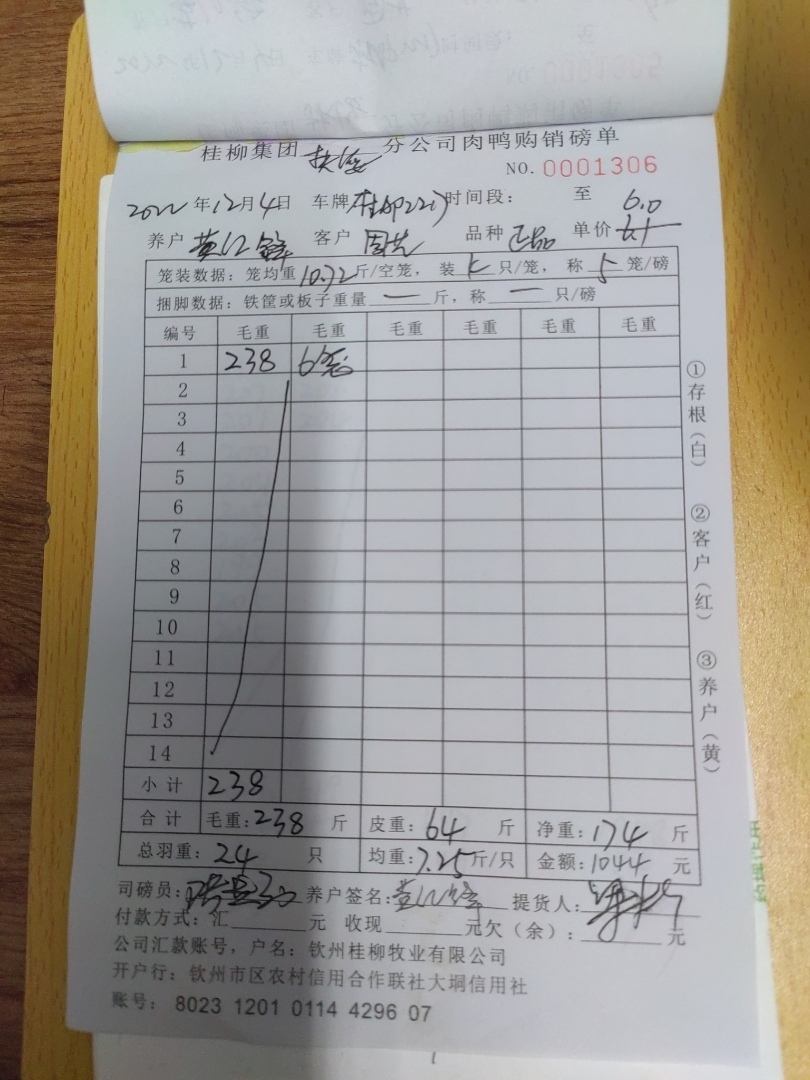 桂柳集团 分公司肉鸭购销磅单
NO. 0001306
2022年12月4日 车牌 时间段: 至
6.0
养户 黄 客户 周 品种 正品 单价
笼装数据: 笼均重10.72斤/空笼, 装 只/笼, 称 5 笼/磅
捆脚数据: 铁筐或板子重量 一 斤, 称 一 只/磅
编号 毛重 毛重 毛重 毛重 毛重 毛重
1 238 6笼
2
3
4
5
6
7
8
9
10
11
12
13
14
小计 238
合计 毛重: 238 斤 皮重: 64 斤 净重: 174 斤
总羽重: 24 只 均重: 7.25斤/只 金额: 1044 元
司磅员: 养户签名: 黄 提货人:
付款方式: 汇 元 收现 元欠(余): 元
公司汇款账号, 户名: 钦州桂柳牧业有限公司
开户行: 钦州市区农村信用合作联社大垌信用社
账号: 8023 1201 0114 4296 07
①存根(白) ②客户(红) ③养户(黄)